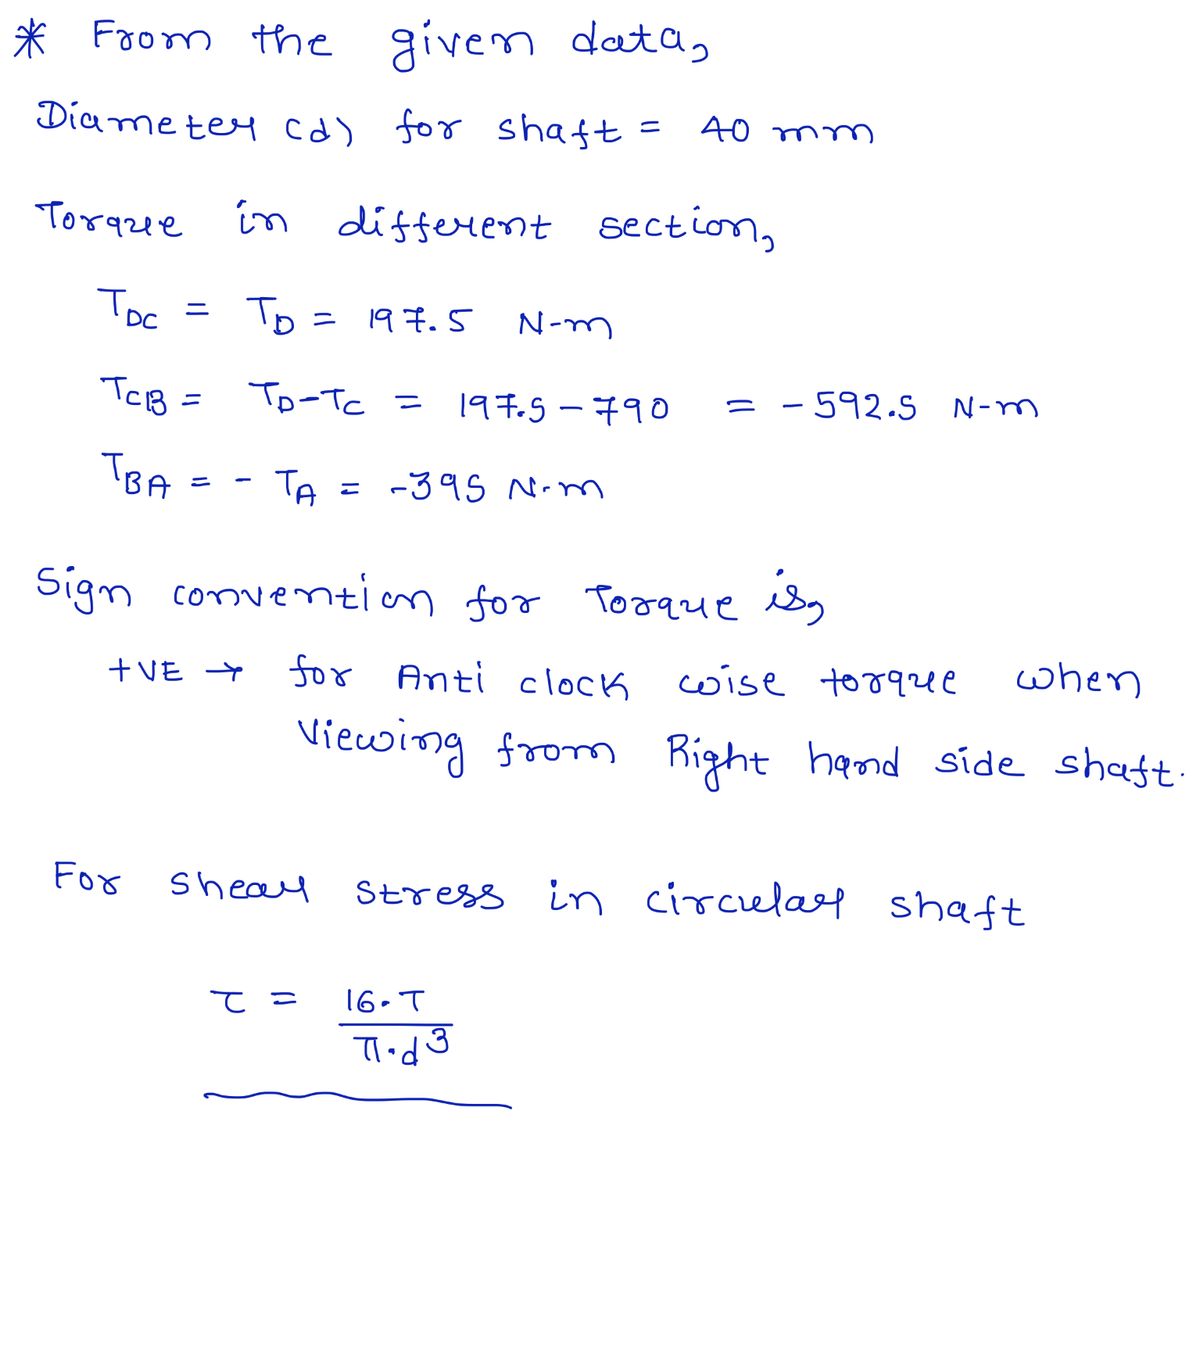 * From the given data,
Diameter (d) for shaft = 40 mm
Torque in different section,
T_DC = T_D = 197.5 N-m
T_CB = T_D-T_C = 197.5 - 790 = - 592.5 N-m
T_BA = - T_A = -395 N-m
Sign convention for Torque is,
+VE → for Anti clock wise torque when
Viewing from Right hand side shaft.
For shear stress in circular shaft
τ = 16.T / π.d³